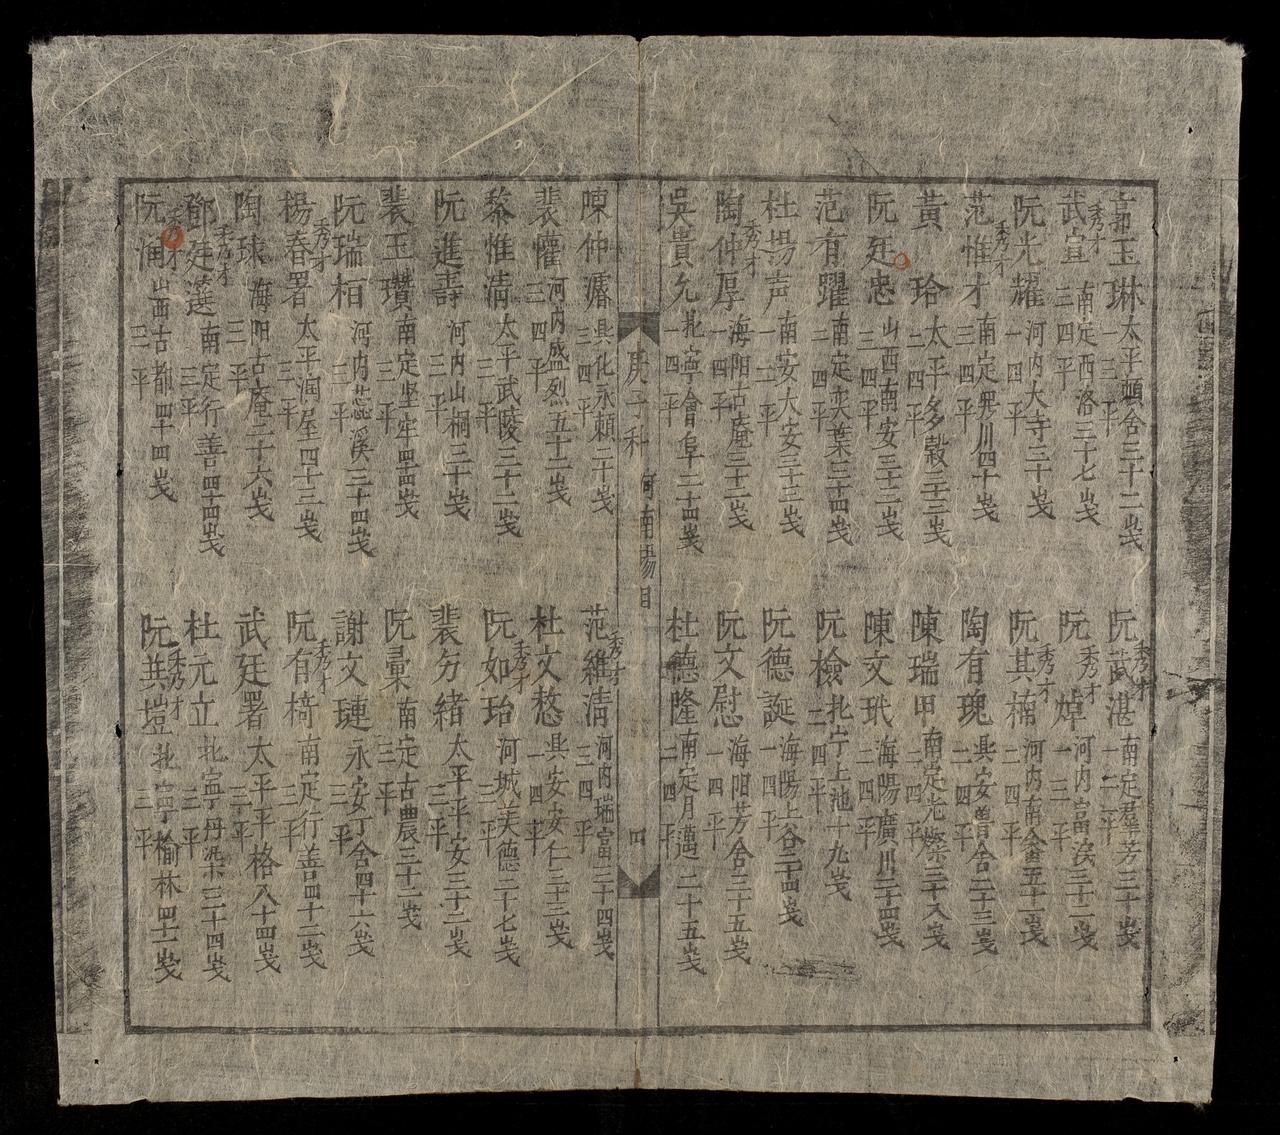 郭玉琳 太平頭舍三十二歲 一三平
武宣 秀才 南定西洛三十七歲 二四平
阮光耀 河内大寺三十歲 一四平
范惟才 秀才 南定 川四十歲 三四平
黃玲 太平多穀三十三歲 二四平
阮廷忠 山西南安三十二歲 三四平
范有躍 南定奕葉三十四歲 二四平
杜揚声 南安大安三十三歲 一二平
陶仲厚 秀才 海陽古庵三十二歲 一四平
吳貴允 北寧會阜二十四歲 一四平
阮武湛 秀才 南定羣芳三十歲 一二平
阮焯 秀才 河内富 三十二歲 一三平
阮其楠 秀才 河内南金五十二歲 二四平
陶有瑰 具安 舍二十三歲 二四平
陳瑞甲 南定光燦二十八歲 二四平
陳文玳 海陽廣川二十四歲 二四平
阮檢 北宁上池十九歲 二四平
阮德誕 海陽上谷二十四歲 一四平
阮文慰 海阳芳舍二十五歲 一四平
杜德隆 南定月邁二十五歲 二四平
庚子科 河南場目 四
陳仲 具化永賴二十歲 三四平
裴 河内盛烈五十二歲 三四平
黎惟清 太平武陵三十二歲 三平
阮進壽 河内山桐三十歲 三平
裴玉瓚 南定坚牢四十四歲 三平
阮瑞栢 河内蕊溪三十四歲 三平
楊春署 秀才 太平潤屋四十三歲 三平
陶球 海阳古庵二十六歲 三平
鄧廷選 秀才 南定行善四十四歲 三平
阮 秀才 山西古都四十四歲 三平
范維清 秀才 河内瑞富三十四歲 三四平
杜文愁 具安安仁三十三歲 一四平
阮如珆 秀才 河城美德二十七歲 三平
裴 緒 太平平安三十二歲 三平
阮彙 南定古農三十二歲 三平
謝文璉 永安丁舍四十六歲 三平
阮有椅 秀才 南定行善四十二歲 三平
武廷署 太平平格八十四歲 三平
杜元立 北寧丹 三十四歲 三平
阮其塏 秀才 北寧榆林四十二歲 三平